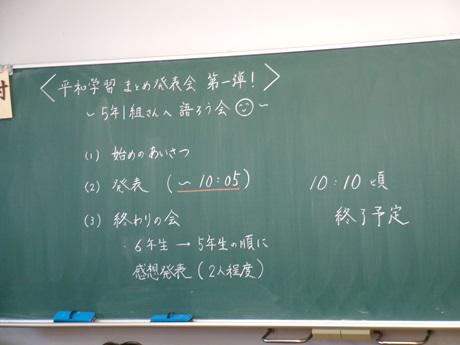 <平和学習 まとめ発表会 第一弾!>
~5年1組さんへ 語ろう会☺~
(1) 始めのあいさつ
(2) 発表 (~10:05)
(3) 終わりの会
・6年生→5年生の順に
感想発表(2人程度)
10:10頃
終了予定